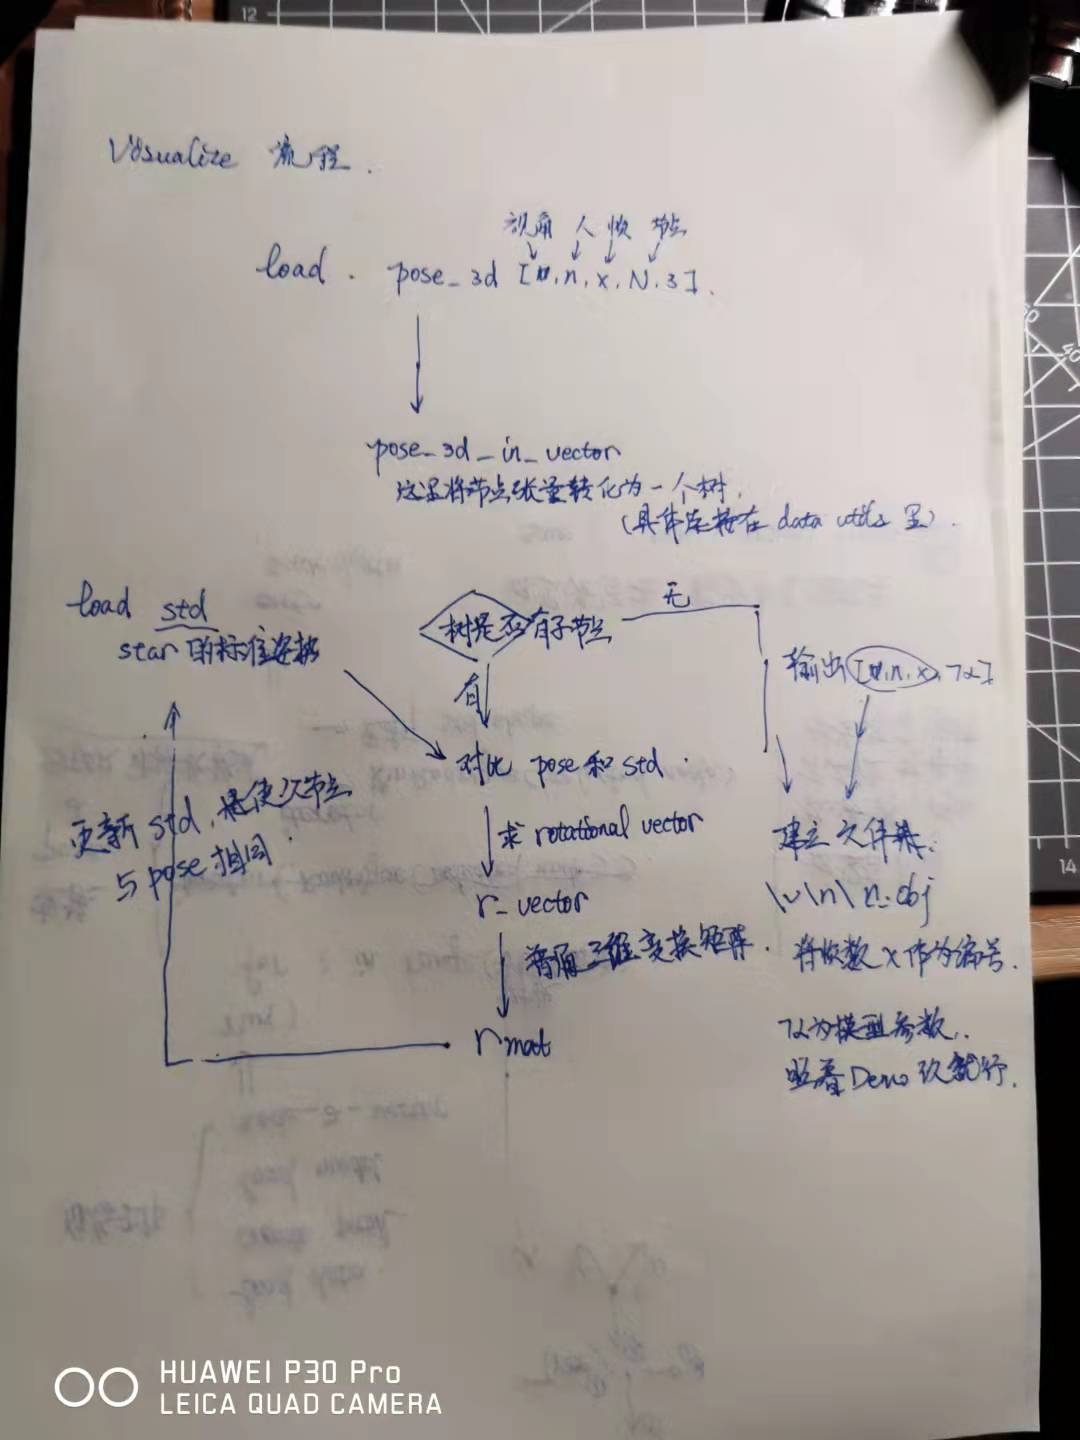 12
Visualize 流程.
视角 人 帧 节点
load. pose_3d [v,n,x,N,3].
pose_3d_in_vector
这里将节点张量转化为一个树.
(具体连接在 data utils 里).
load std
star的标准姿势
树是否有子节点
无
有
输出[v,n,x,72]
对比 pose和std.
更新std,将使次节点
与pose相同.
求rotational vector
r_vector
建立文件夹.
\v\n\n.obj
将帧数x作为编号.
三维变换矩阵.
rmat
72为模型参数,
照着Demo改就行.
14
HUAWEI P30 Pro
LEICA QUAD CAMERA